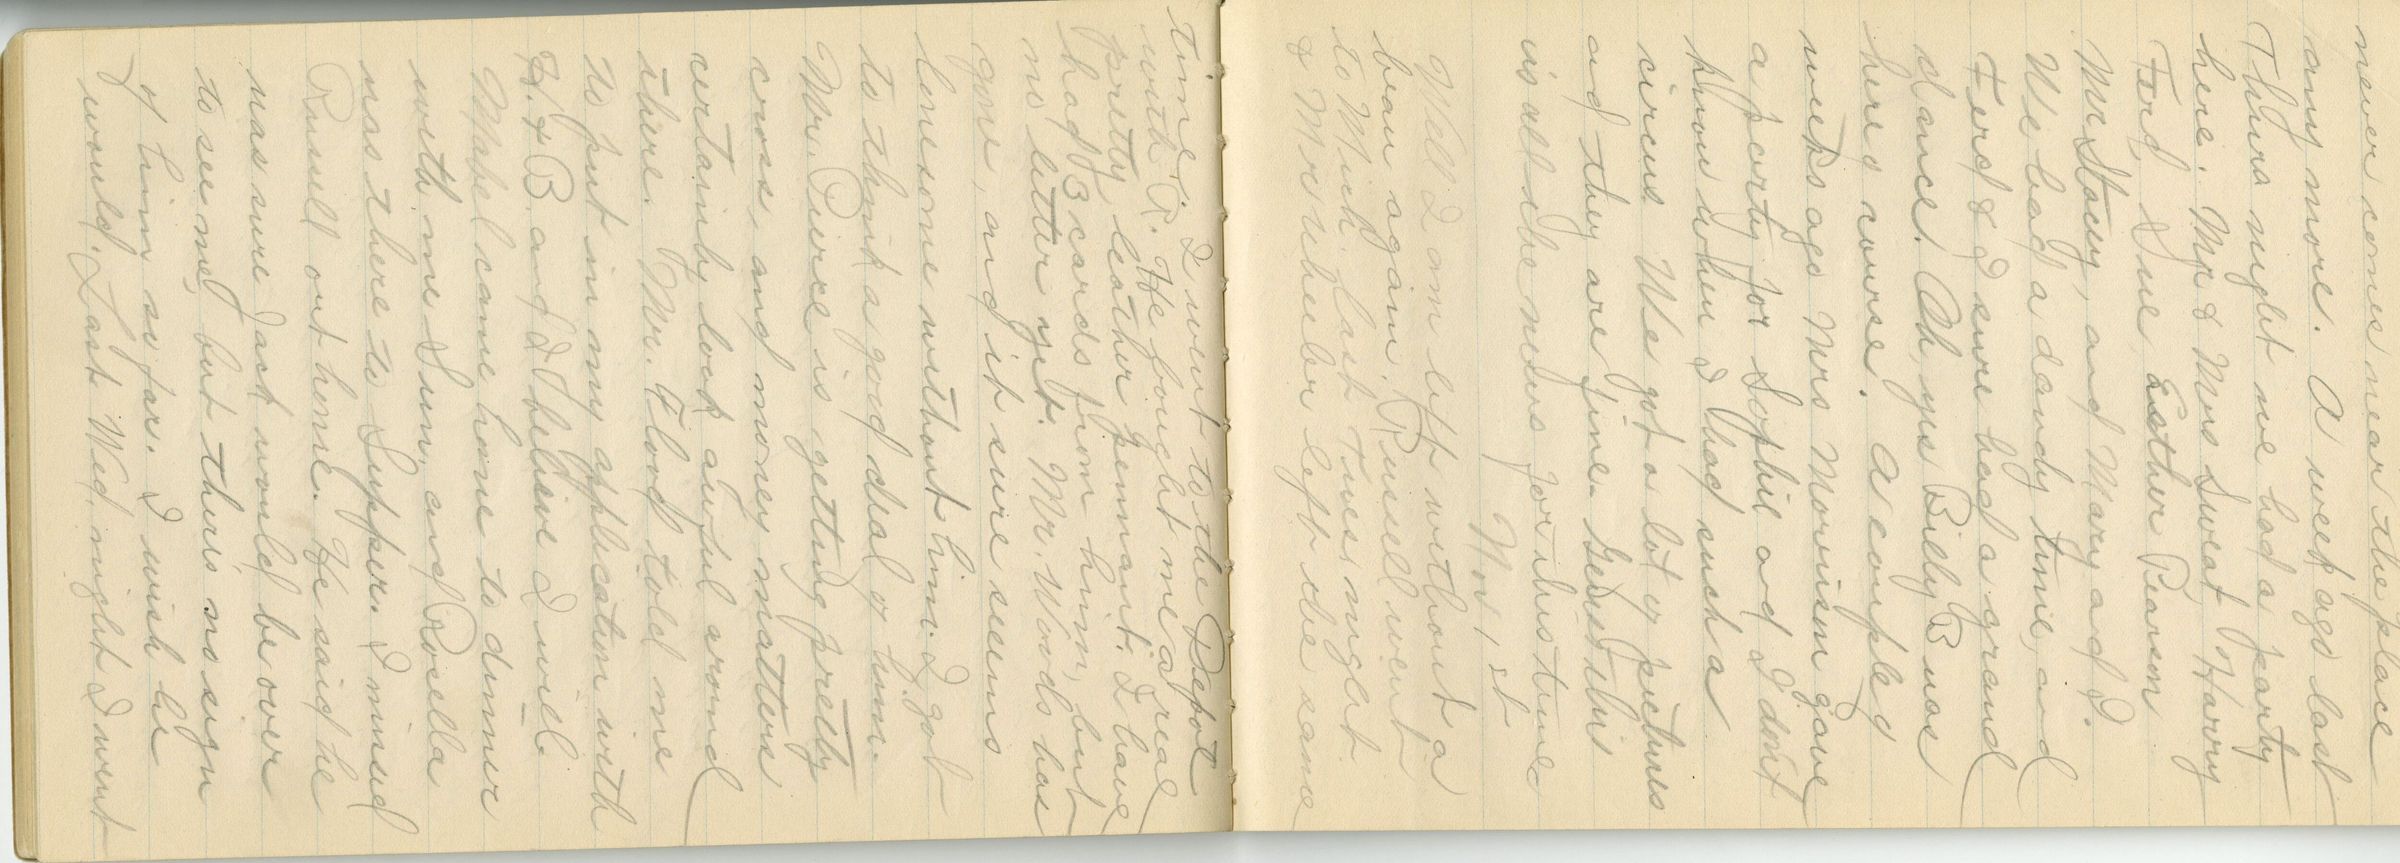 never comes near the place
any more. A week ago last
Thurs night we had a party
here. Mr & Mrs Sweat Harry
Ferd, Sue Esther Pearson
Mr Story, and Mary a d I.
We had a dandy time, a d
Ferd & I sure had a grand
dance. Oh, yes Billy B was
here of course. A couple of
weeks ago Mrs Morrison gave
a party for Sophie a d I dont
know when I had such a
circus. We got a lot of pictures
a d they are fine. Guess this
is all the news for this time
Nov, st
Well I am left without a
beau again. Russell went
to Mich. last Tues, night
& Mr Wheeler left the same
time. I went to the Depot
with R. He bought me a real
pretty leather pennant. I have
had 3 cards from him, but
no letter yet. Mr. Woods has
gone, and it sure seems
lonesome without him. I got
to think a good deal of him.
Mr. Peirce is getting pretty
cross, and money matters
certainly look awful around
there. Mr. Flood told me
to put in my application with
H. & B. and I believe I will.
Mabel came home to dinner
with me Sun, and Rosella
was there to Supper. I missed
Russell out home. He said he
was sure Jack would be over
to see me, but there's no sign
of him so far. I wish he
would. Last Wed, night I went